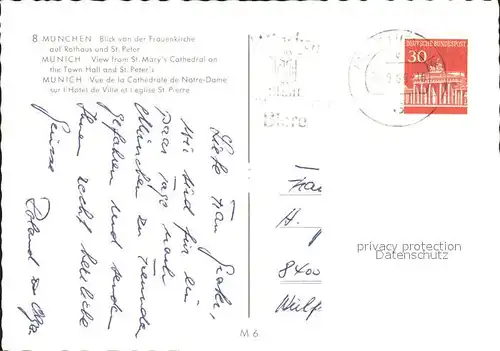 8 MÜNCHEN Blick von der Frauenkirche
auf Rathaus und St. Peter
MUNICH View from St. Mary's Cathedral on
the Town Hall and St. Peter's
MUNICH Vue de la Cathédrale de Notre-Dame
sur l'Hotel de Ville et l'eglise St. Pierre
Biere
DEUTSCHE BUNDESPOST
30
Liebe Frau
wir sind für ein
paar Tage nach
München zu Freunden
gefahren und senden
Ihnen recht herzliche
Grüsse
Roland u. Olga
Frau
H.
8400
privacy protection
Datenschutz
M 6